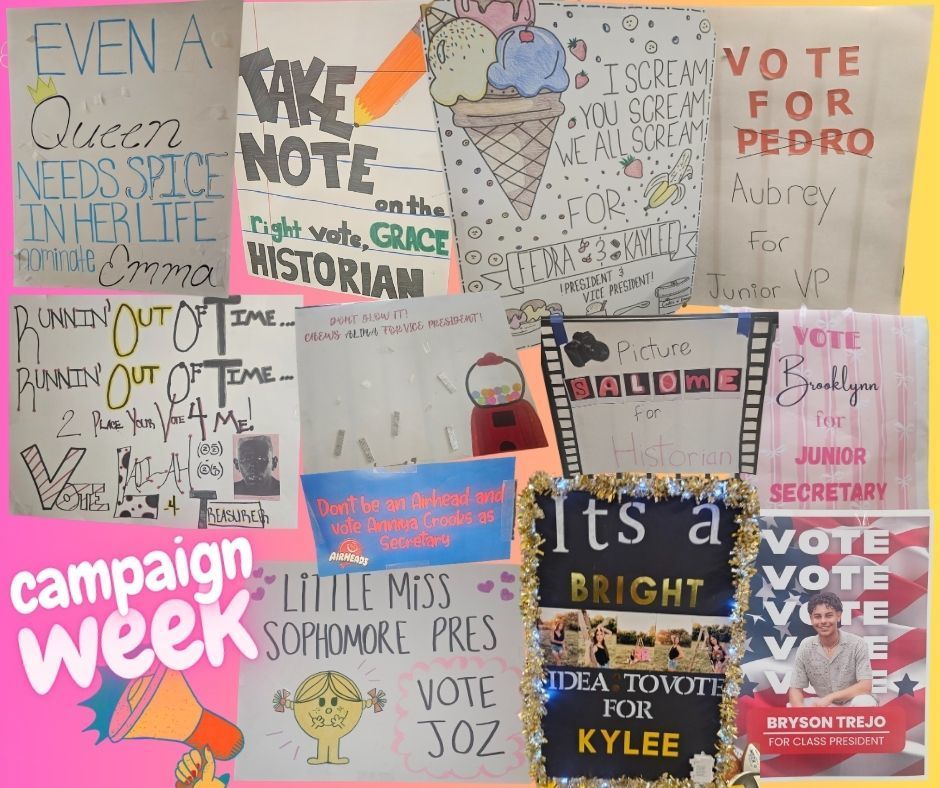 EVEN A
Queen
NEEDS SPICE
IN HER LIFE
nominate Emma
TAKE
NOTE
on the
right vote, GRACE
HISTORIAN
I SCREAM
YOU SCREAM
WE ALL SCREAM
FOR
FEDRA & KAYLEE
! PRESIDENT &
VICE PRESIDENT!
VOTE
FOR
PEDRO
Aubrey
For
Junior VP
RUNNIN' OUT OF TIME...
RUNNIN' OUT OF TIME...
2 PLACE YOUR VOTE 4 ME!
VOTE JAI-AH 4 TREASURER
DON'T BLOW IT!
FOR VICE PRESIDENT!
Don't be an Airhead and
vote Anniya Crooks as
Secretary
AIRHEADS
Picture
SALOME
for
Historian
VOTE
Brooklynn
for
JUNIOR
SECRETARY
campaign
week
LITTLE MISS
SOPHOMORE PRES
VOTE
JOZ
Its a
BRIGHT
IDEA TO VOTE
FOR
KYLEE
VOTE
VOTE
VOTE
VOTE
VOTE
BRYSON TREJO
FOR CLASS PRESIDENT